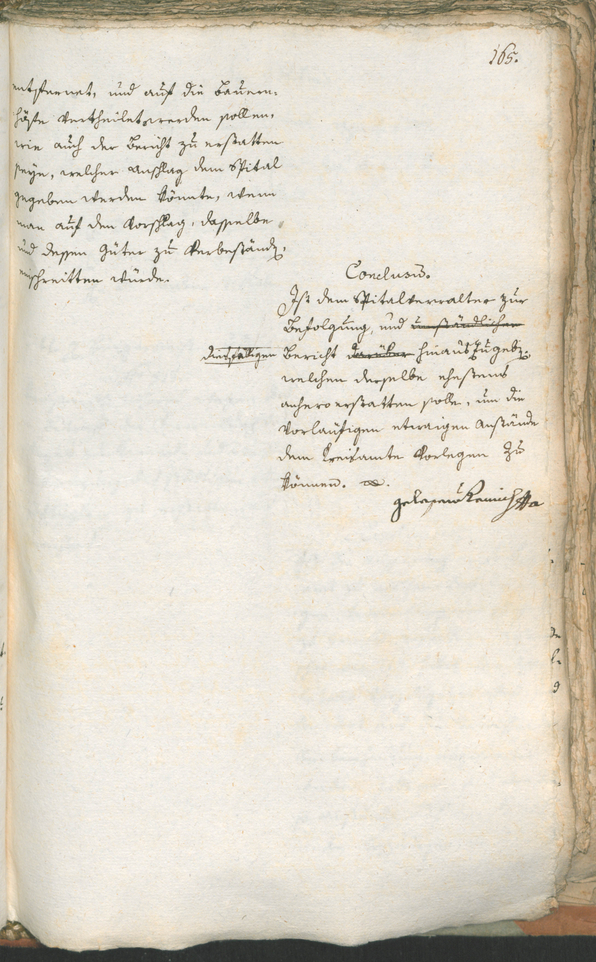 165.
entfernet, und auf die Bauern-
höfe vertheilet werden sollen,
wie auch der Bericht zu erstatten
seye, welcher Anschlag dem Spital
gegeben werden könnte, wenn
man auf den Vorschlag, dasselbe
und dessen Güter zu verbeständ.
einschreitten würde.
Conclusū.
Ist dem Spitalverwalter zur
Befolgung, und umständlichen
diesfälligen Bericht darüber hinauszugeb.
welchen derselbe ehestens
anhero erstatten solle, um die
vorläufigen etwaigen Anstände
dem Kreisamte vorlegen zu
können.